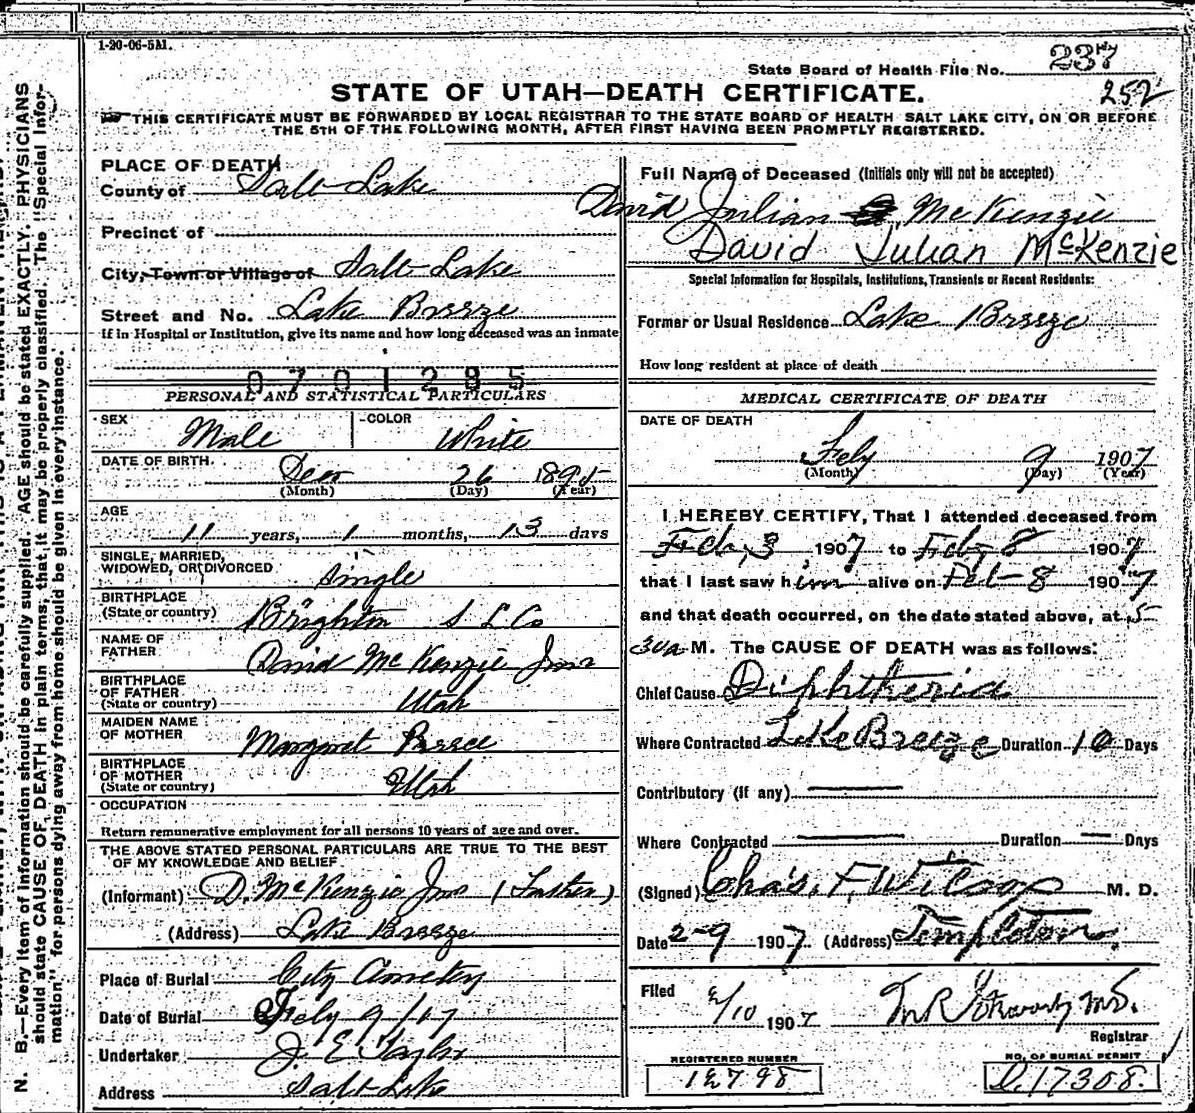 1-20-06-5M.
State Board of Health File No. 237
252
STATE OF UTAH—DEATH CERTIFICATE.
THIS CERTIFICATE MUST BE FORWARDED BY LOCAL REGISTRAR TO THE STATE BOARD OF HEALTH SALT LAKE CITY, ON OR BEFORE
THE 5TH OF THE FOLLOWING MONTH, AFTER FIRST HAVING BEEN PROMPTLY REGISTERED.
PLACE OF DEATH
County of Salt Lake
Precinct of
City, Town or Village of Salt Lake
Street and No. Lake Breeze
If in Hospital or Institution, give its name and how long deceased was an inmate
0701285
PERSONAL AND STATISTICAL PARTICULARS
SEX Male COLOR White
DATE OF BIRTH. Dec 26 1895
(Month) (Day) (Year)
AGE
11 years, 1 months, 13 days
SINGLE, MARRIED,
WIDOWED, OR DIVORCED Single
BIRTHPLACE
(State or country) Brighton S L Co
NAME OF
FATHER David McKenzie Jnr
BIRTHPLACE
OF FATHER
(State or country) Utah
MAIDEN NAME
OF MOTHER Margaret
BIRTHPLACE
OF MOTHER
(State or country) Utah
OCCUPATION
Return remunerative employment for all persons 10 years of age and over.
THE ABOVE STATED PERSONAL PARTICULARS ARE TRUE TO THE BEST
OF MY KNOWLEDGE AND BELIEF.
(Informant) D. McKenzie Jnr (Father)
(Address) Lake Breeze
Place of Burial City Cemetery
Date of Burial Feby 9/07
Undertaker J. E Taylor
Address Salt Lake
Full Name of Deceased (Initials only will not be accepted)
David Julian McKenzie
David Julian McKenzie
Special Information for Hospitals, Institutions, Transients or Recent Residents:
Former or Usual Residence Lake Breeze
How long resident at place of death
MEDICAL CERTIFICATE OF DEATH
DATE OF DEATH
Feby 9 1907
(Month) (Day) (Year)
I HEREBY CERTIFY, That I attended deceased from
Feb, 3 1907 to Feby 8 1907
that I last saw him alive on Feb 8 1907
and that death occurred, on the date stated above, at 5
30a M. The CAUSE OF DEATH was as follows:
Chief Cause Diphtheria
Where Contracted Lake Breeze Duration 10 Days
Contributory (if any)
Where Contracted Duration Days
(Signed) Chas. F. Wilcox M. D.
Date 2-9 1907 (Address) Templeton.
Filed 2/10 1907
Registrar
REGISTERED NUMBER
12798
NO. OF BURIAL PERMIT
D.17308.
N. B.—Every item of information should be carefully supplied. AGE should be stated EXACTLY. PHYSICIANS
should state CAUSE OF DEATH in plain terms, that it may be properly classified. The "Special Infor-
mation" for persons dying away from home should be given in every instance.